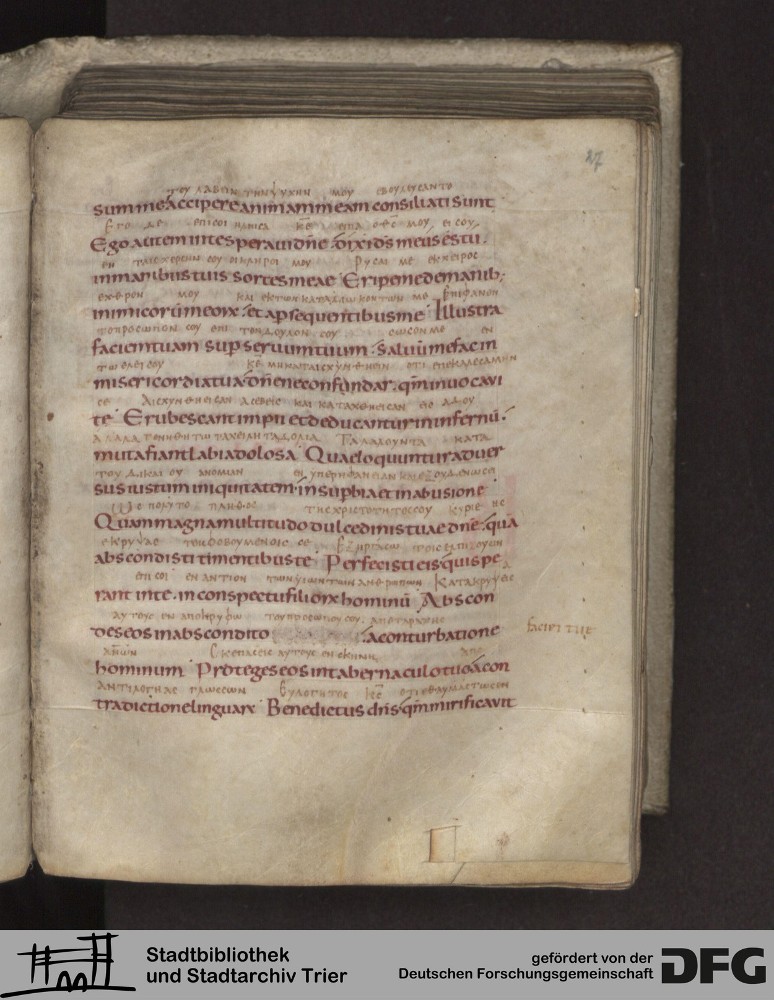 27
ΤΟΥ ΛΑΒΕΙΝ ΤΗΝ ΨΥΧΗΝ ΜΟΥ ΕΒΟΥΛΕΥΣΑΝΤΟ
summe Accipere animam meam consiliati sunt
ΕΓΟ ΔΕ ΕΠΙ ΣΟΙ ΗΛΠΙΣΑ ΚΕ ΕΙΠΑ ΜΟΥ ΕΙ ΣΟΥ
Ego autem inte speraui dne dixi ds meus es tu
ΕΝ ΤΑΙΣ ΧΕΡΣΙΝ ΣΟΥ ΟΙ ΚΛΗΡΟΙ ΜΟΥ ΡΥΣΑΙ ΜΕ ΕΚ ΧΕΙΡΟΣ
inmanibus tuis sortes meae Eripe me demanib;
ΕΧΘΡΟΝ ΜΟΥ ΚΑΙ ΕΚ ΤΩΝ ΚΑΤΑΔΙΩΚΟΝΤΩΝ ΜΕ ΕΠΙΦΑΝΟΝ
inimicorū meorx et apsequentibus me Illustra
ΤΟ ΠΡΟΣΩΠΟΝ ΣΟΥ ΕΠΙ ΤΟΝ ΔΟΥΛΟΝ ΣΟΥ ΣΩΣΟΝ ΜΕ ΕΝ
faciem tuam sup seruum tuum saluū me fac in
ΤΩ ΕΛΕΙ ΣΟΥ ΚΕ ΜΗ ΚΑΤΑΙΣΧΥΝΘΕΙΗΝ ΟΤΙ ΕΠΕΚΑΛΕΣΑΜΗΝ
misericordia tua dñe ne confundar qm inuocaui
ΣΕ ΑΙΣΧΥΝΘΕΙΕΣΑΝ ΑΣΕΒΕΙΣ ΚΑΙ ΚΑΤΑΧΘΕΙΕΣΑΝ ΕΙΣ ΑΔΟΥ
te Erubescant impii et deducantur in infernū
ΑΛΑΛΑ ΓΕΝΗΘΗΤΩ ΤΑ ΧΕΙΛΗ ΤΑ ΔΟΛΙΑ ΤΑ ΛΑΛΟΥΝΤΑ ΚΑΤΑ
muta fiant labia dolosa Quae loquuntur aduer
ΤΟΥ ΔΙΚΑΙΟΥ ΑΝΟΜΙΑΝ ΕΝ ΥΠΕΡΗΦΑΝΕΙΑ ΚΑΙ ΕΞΟΥΔΕΝΩΣΕΙ
sus iustum iniquitatem in supbia et in abusione
ΩΣ ΠΟΛΥ ΤΟ ΠΛΗΘΟΣ ΤΗΣ ΧΡΙΣΤΟΤΗΤΟΣ ΣΟΥ ΚΥΡΙΕ ΗΣ
Quam magna multitudo dulcedinis tuae dne quā
ΕΚΡΥΨΑΣ ΤΟΙΣ ΦΟΒΟΥΜΕΝΟΙΣ ΣΕ ΕΞΙΡΓΑΣΩ ΤΟΙΣ ΕΛΠΙΖΟΥΣΙΝ
abscondisti timentibus te Perfecisti eis qui spe
ΕΠΙ ΣΟΙ ΕΝΑΝΤΙΟΝ ΤΩΝ ΥΙΩΝ ΤΩΝ ΑΝΘΡΩΠΩΝ ΚΑΤΑΚΡΥΨΕΙΣ
rant inte in conspectu filiorx hominū Abscon
ΑΥΤΟΥΣ ΕΝ ΑΠΟΚΡΥΦΩ ΤΟΥ ΠΡΟΣΩΠΟΥ ΣΟΥ ΑΠΟ ΤΑΡΑΧΗΣ
des eos in abscondito a conturbatione faciei tue
ΑΝΩΝ ΣΚΕΠΑΣΕΙΣ ΑΥΤΟΥΣ ΕΝ ΣΚΗΝΗ ΑΠΟ
hominum Proteges eos in tabernaculo tuo a con
ΑΝΤΙΛΟΓΙΑΣ ΓΛΩΣΣΩΝ ΕΥΛΟΓΗΤΟΣ ΚΣ ΟΤΙ ΕΘΑΥΜΑΣΤΩΣΕΝ
tradictione linguarx Benedictus dns qm mirificauit
Stadtbibliothek
und Stadtarchiv Trier
gefördert von der
Deutschen Forschungsgemeinschaft
DFG